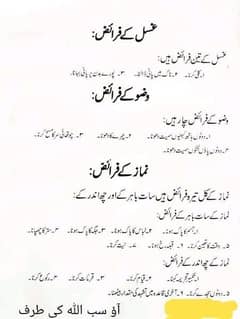 غسل کے فرائض:
غسل کے تین فرائض ہیں:
۱۔ کلی کرنا۔ ۲۔ ناک میں پانی ڈالنا۔ ۳۔ پورے بدن پر پانی بہانا۔
وضو کے فرائض:
وضو کے فرائض چار ہیں:
۱۔ دونوں ہاتھ کہنیوں سمیت دھونا۔ ۲۔ چہرے کا دھونا۔ ۳۔ چوتھائی سر کا مسح کرنا۔
۴۔ دونوں پاؤں ٹخنوں سمیت دھونا۔
نماز کے فرائض:
نماز کے کل تیرہ فرائض ہیں سات باہر کے اور چھ اندر کے:
نماز کے سات باہر کے فرائض:
۱۔ جسم کا پاک ہونا۔ ۲۔ لباس کا پاک ہونا۔ ۳۔ جگہ کا پاک ہونا۔ ۴۔ ستر کا چھپانا۔
۵۔ وقت کا تعین کرنا۔ ۶۔ قبلہ رخ ہونا۔ ۷۔ نیت کرنا۔
نماز کے چھ اندر کے فرائض:
۱۔ تکبیر تحریمہ کہنا۔ ۲۔ قیام کرنا۔ ۳۔ قرأت کرنا۔ ۴۔ رکوع کرنا۔
۵۔ دونوں سجدے کرنا۔ ۶۔ آخری قاعدہ میں تشہد کی مقدار بیٹھنا۔
آؤ سب اللہ کی طرف